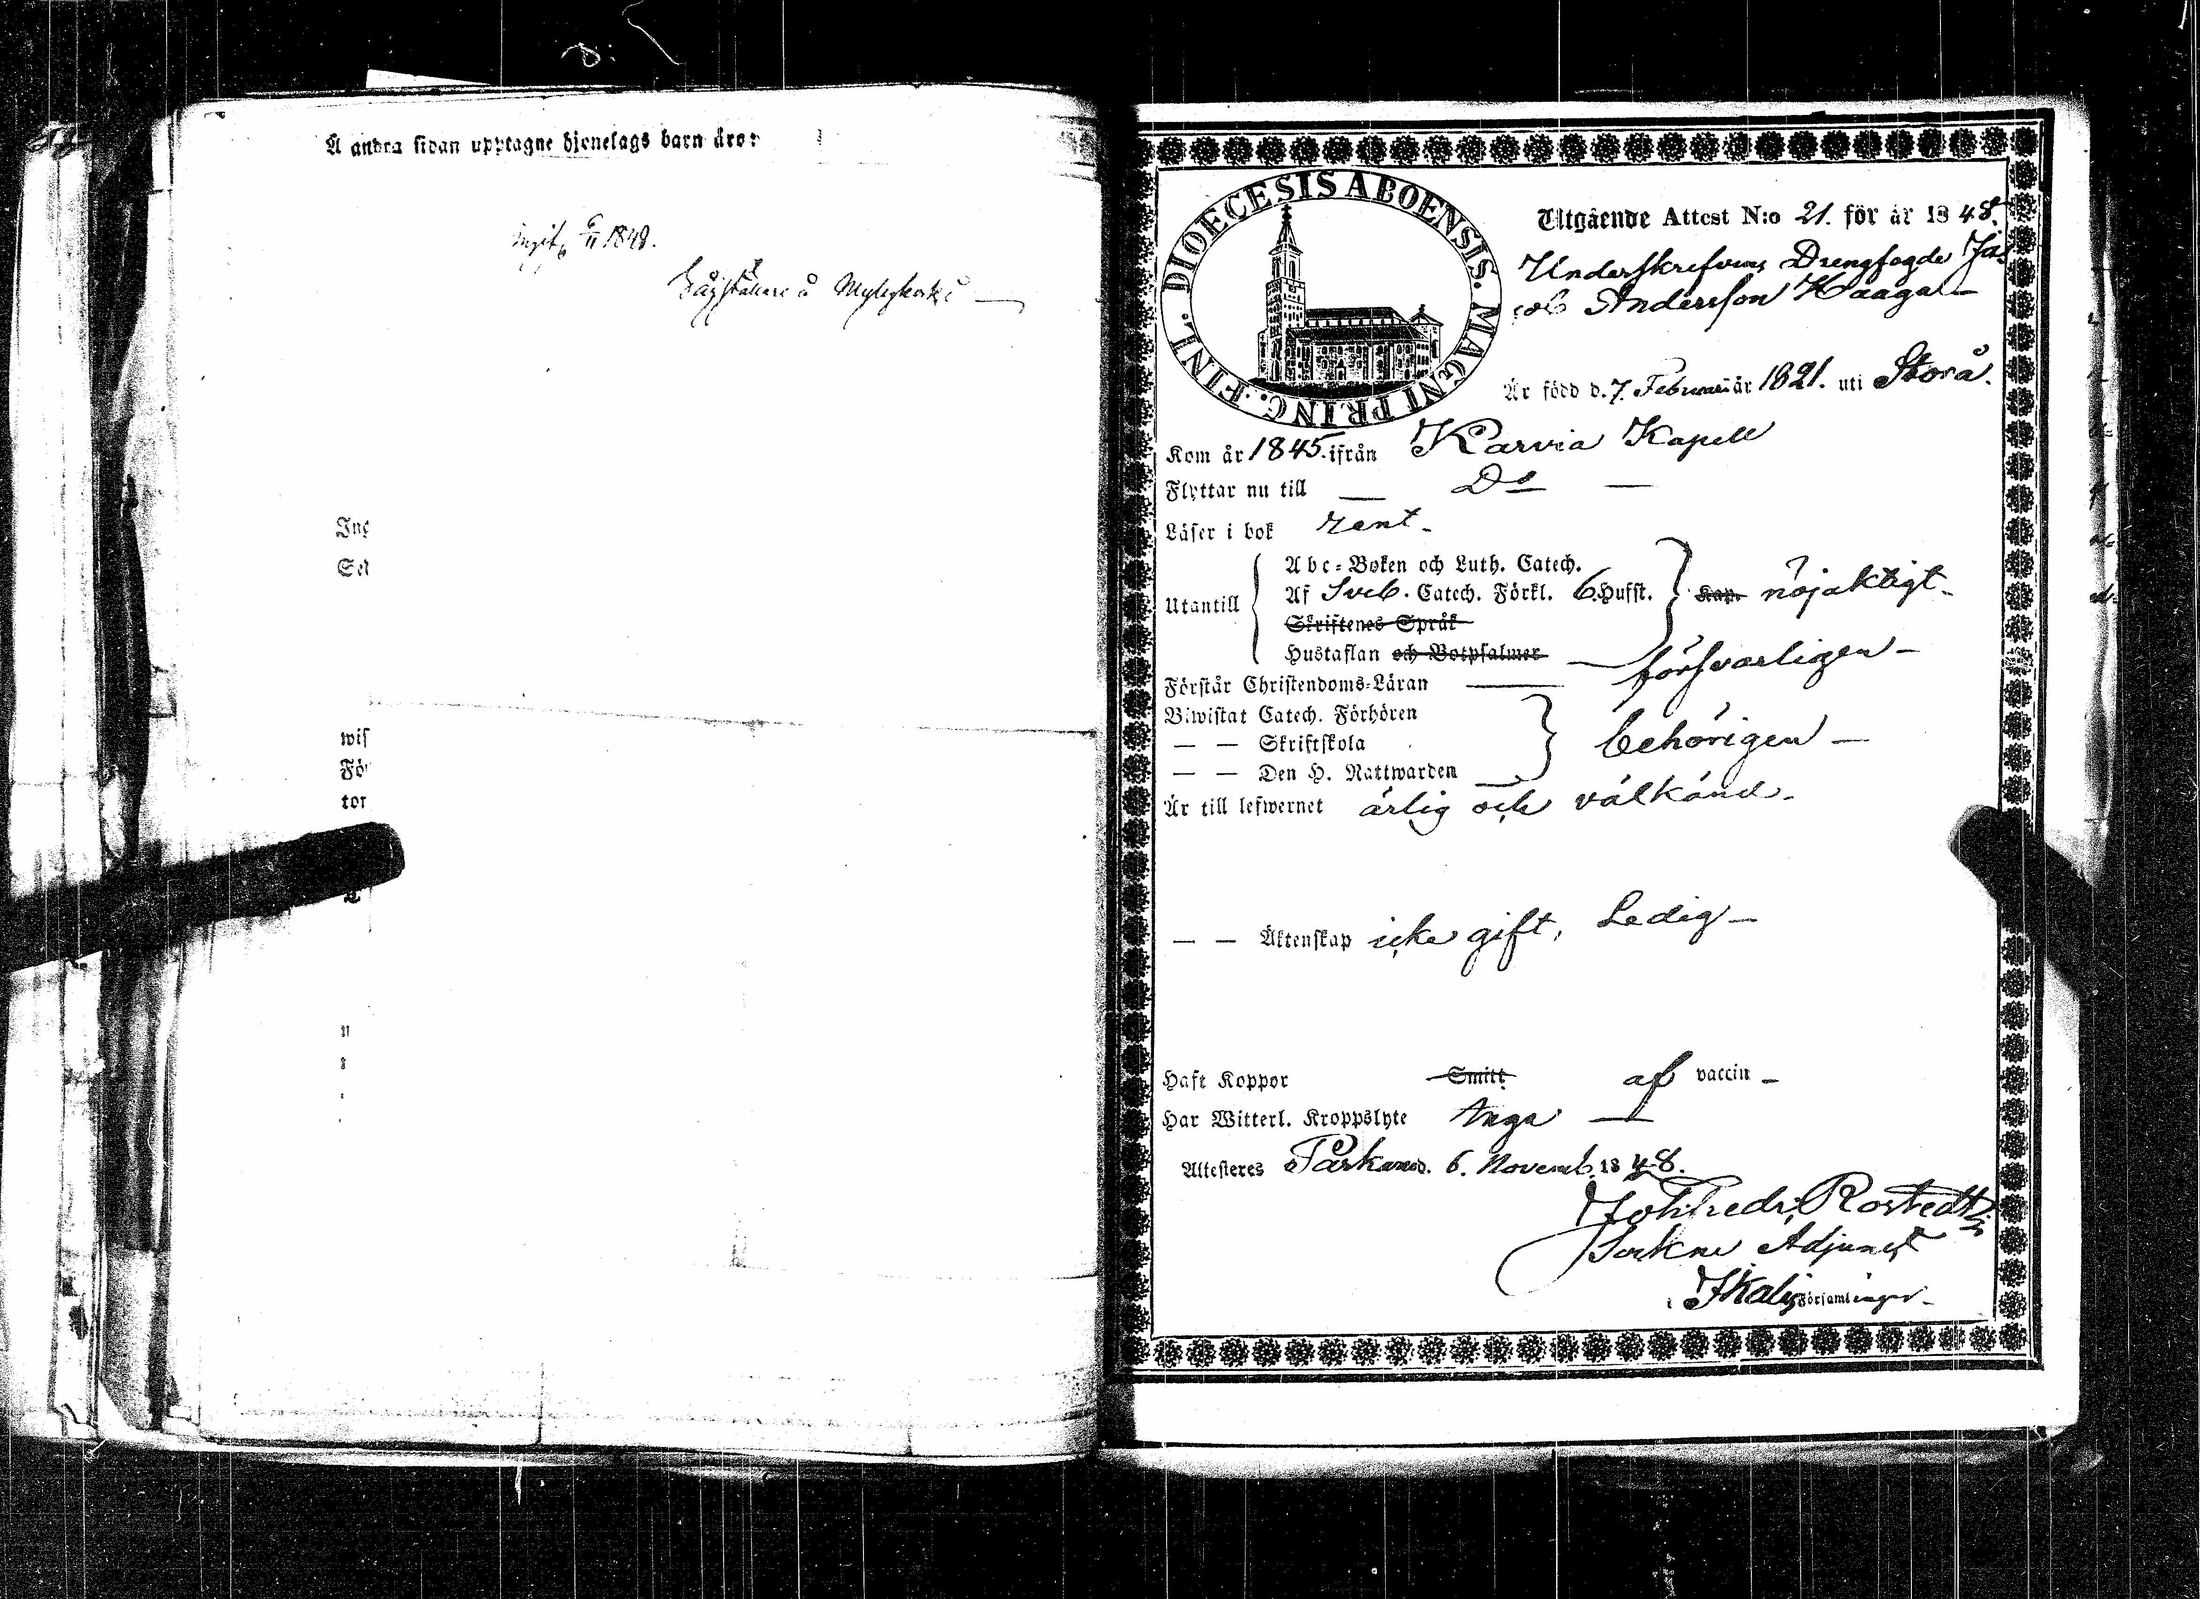 Å andra sidan upptagne hjonelags barn äro:
6/11 1848.
å
Ing
Sed
wis
För
tor
DIOECESIS ABOENSIS. MAGNI PRINC. FINL.
Utgående Attest N:o 21. för år 1848.
Underskrefven Drengfogde Ja-
cob Andersson Haaga —
Är född d. 7. Februari år 1821. uti Storå.
Kom år 1845. ifrån Karvia Kapell
Flyttar nu till — Do —
Läser i bok rent —
Abc-Boken och Luth. Catech.
Utantill Af Sveb. Catech. Förkl. 6. Hufst. Kap. nöjaktigt —
Skriftenes Språk
Hustaflan och Botpsalmer
Förstår Christendoms-Läran — försvarligen —
Biwistat Catech. Förhören
— — Skriftskola behörigen —
— — Den H. Nattwarden
Är till lefwernet ärlig och välkänd —
— — Äktenskap icke gift, Ledig —
Haft Koppor Smitt af vaccin —
Har Witterl. Kroppslyte Inga —
Attesteres Parkano d. 6. Novemb. 1848.
Joh: Fredr: Rostedt
Sockne Adjunct
i Ikalis Församlingar —